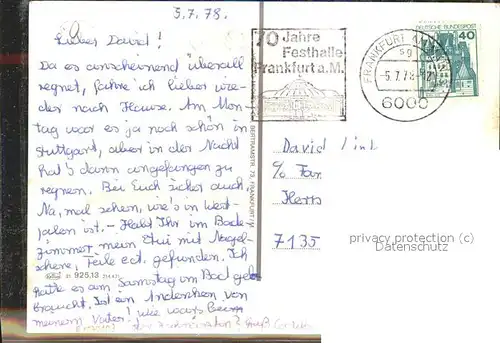 5.7.78.
Lieber David!
Da es anscheinend überall
regnet, fahre ich lieber wie-
der nach Hause. Am Mon-
tag war es ja noch schön in
Stuttgart, aber in der Nacht
hat's dann angefangen zu
regnen. Bei Euch sicher auch.
Na, mal sehen, wie's in West-
falen ist. - Habt Ihr im Bade-
zimmer mein Etui mit Nagel-
schere, Feile ect. gefunden. Ich
hatte es am Samstag im Bad ge-
braucht. Ist ein Andenken von
meinem Vater! Wie war's beim
925.13
BERTRAMSTR. 73, FRANKFURT/M
70 Jahre
Festhalle
Frankfurt a.M.
FRANKFURT AM MAIN
sg
-5.7.78-
6000
DEUTSCHE BUNDESPOST
40
David
c/o Fam.
Herrn
7135
privacy protection (c)
Datenschutz